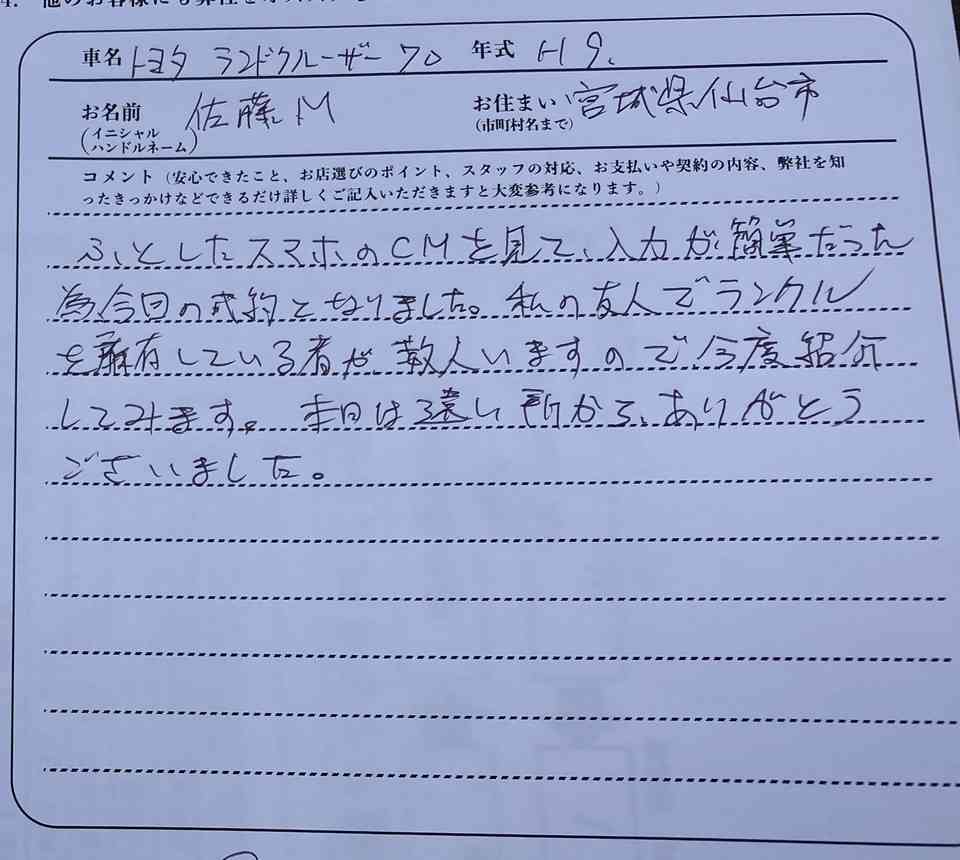 4. 他のお客様にも弊社を
車名 トヨタ ランドクルーザー70 年式 H9.
お名前 佐藤M お住まい 宮城県仙台市
(イニシャル (市町村名まで)
ハンドルネーム)
コメント（安心できたこと、お店選びのポイント、スタッフの対応、お支払いや契約の内容、弊社を知
ったきっかけなどできるだけ詳しくご記入いただきますと大変参考になります。）
ふとしたスマホのCMを見て、入力が簡単だった
為今回の成約となりました。私の友人でランクル
を所有している者が数人いますので今度紹介
してみます。本日は遠い所から、ありがとう
ございました。